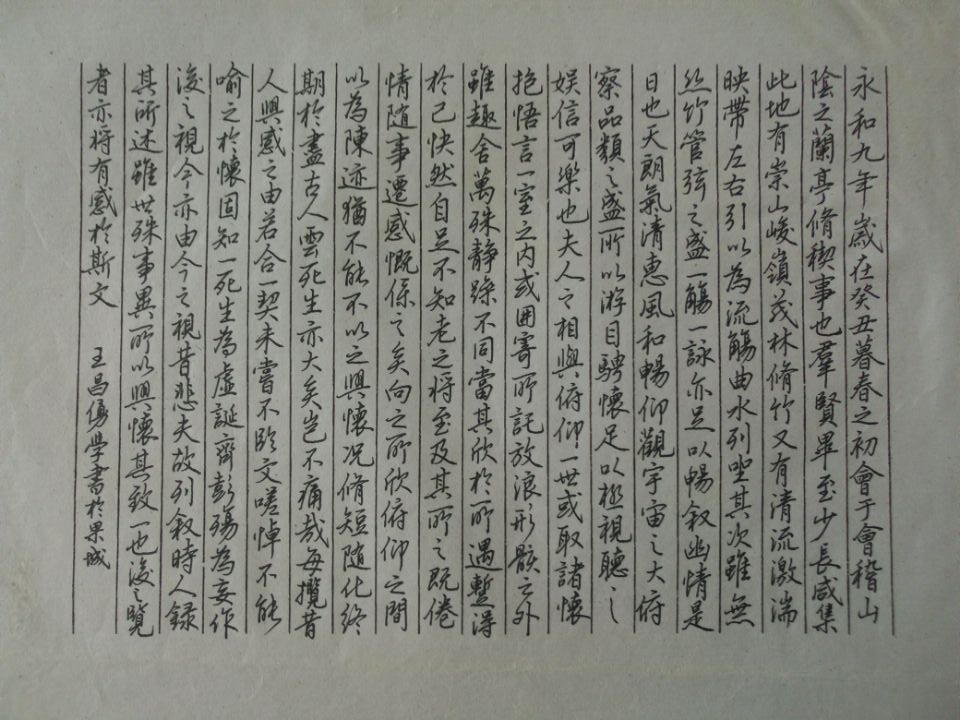 永和九年歲在癸丑暮春之初會于會稽山
陰之蘭亭脩禊事也羣賢畢至少長咸集
此地有崇山峻嶺茂林脩竹又有清流激湍
映帶左右引以為流觴曲水列坐其次雖無
丝竹管弦之盛一觴一詠亦足以暢叙幽情是
日也天朗氣清惠風和暢仰觀宇宙之大俯
察品類之盛所以游目騁懷足以極視聽之
娱信可樂也夫人之相與俯仰一世或取諸懷
抱悟言一室之内或因寄所託放浪形骸之外
雖趣舍萬殊静躁不同當其欣於所遇暫得
於己快然自足不知老之将至及其所之既倦
情隨事遷感慨係之矣向之所欣俯仰之間
以為陳迹猶不能不以之興懷况脩短随化终
期於盡古人雲死生亦大矣岂不痛哉每攬昔
人興感之由若合一契未嘗不臨文嗟悼不能
喻之於懷固知一死生為虚誕齊彭殤為妄作
後之視今亦由今之視昔悲夫故列叙時人録
其所述雖世殊事異所以興懷其致一也後之覽
者亦将有感於斯文
王昌勇學書於果城